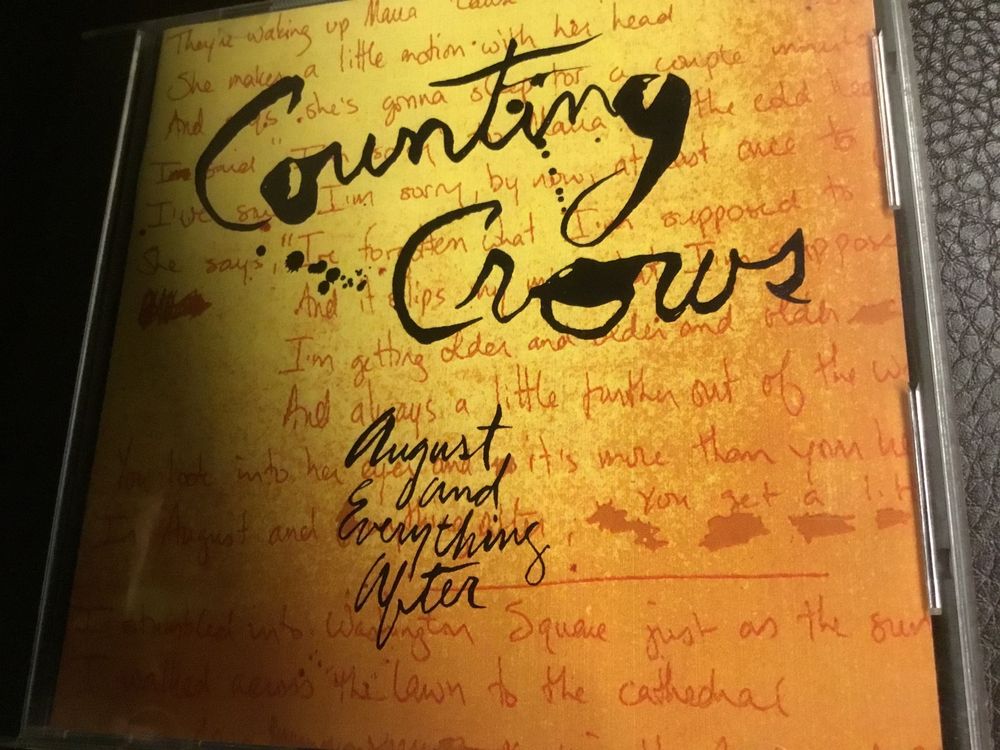 They're waking up Maria 'cause
She makes a little motion with her head
Counting
And says she's gonna sleep for a couple
I'm said " I'm Maria the cold
I've I'm sorry, by now, at least once to
Crows
She says, "I've forgotten what I'm supposed to
And it slips my I'm
I'm getting older and older and older
And always a little further out of the
August
and
Everything
After
You look into her eyes and it's more than your
In August and You get a
I stumbled into Washington Square just as the sun
I walked across the lawn to the cathedral
in the